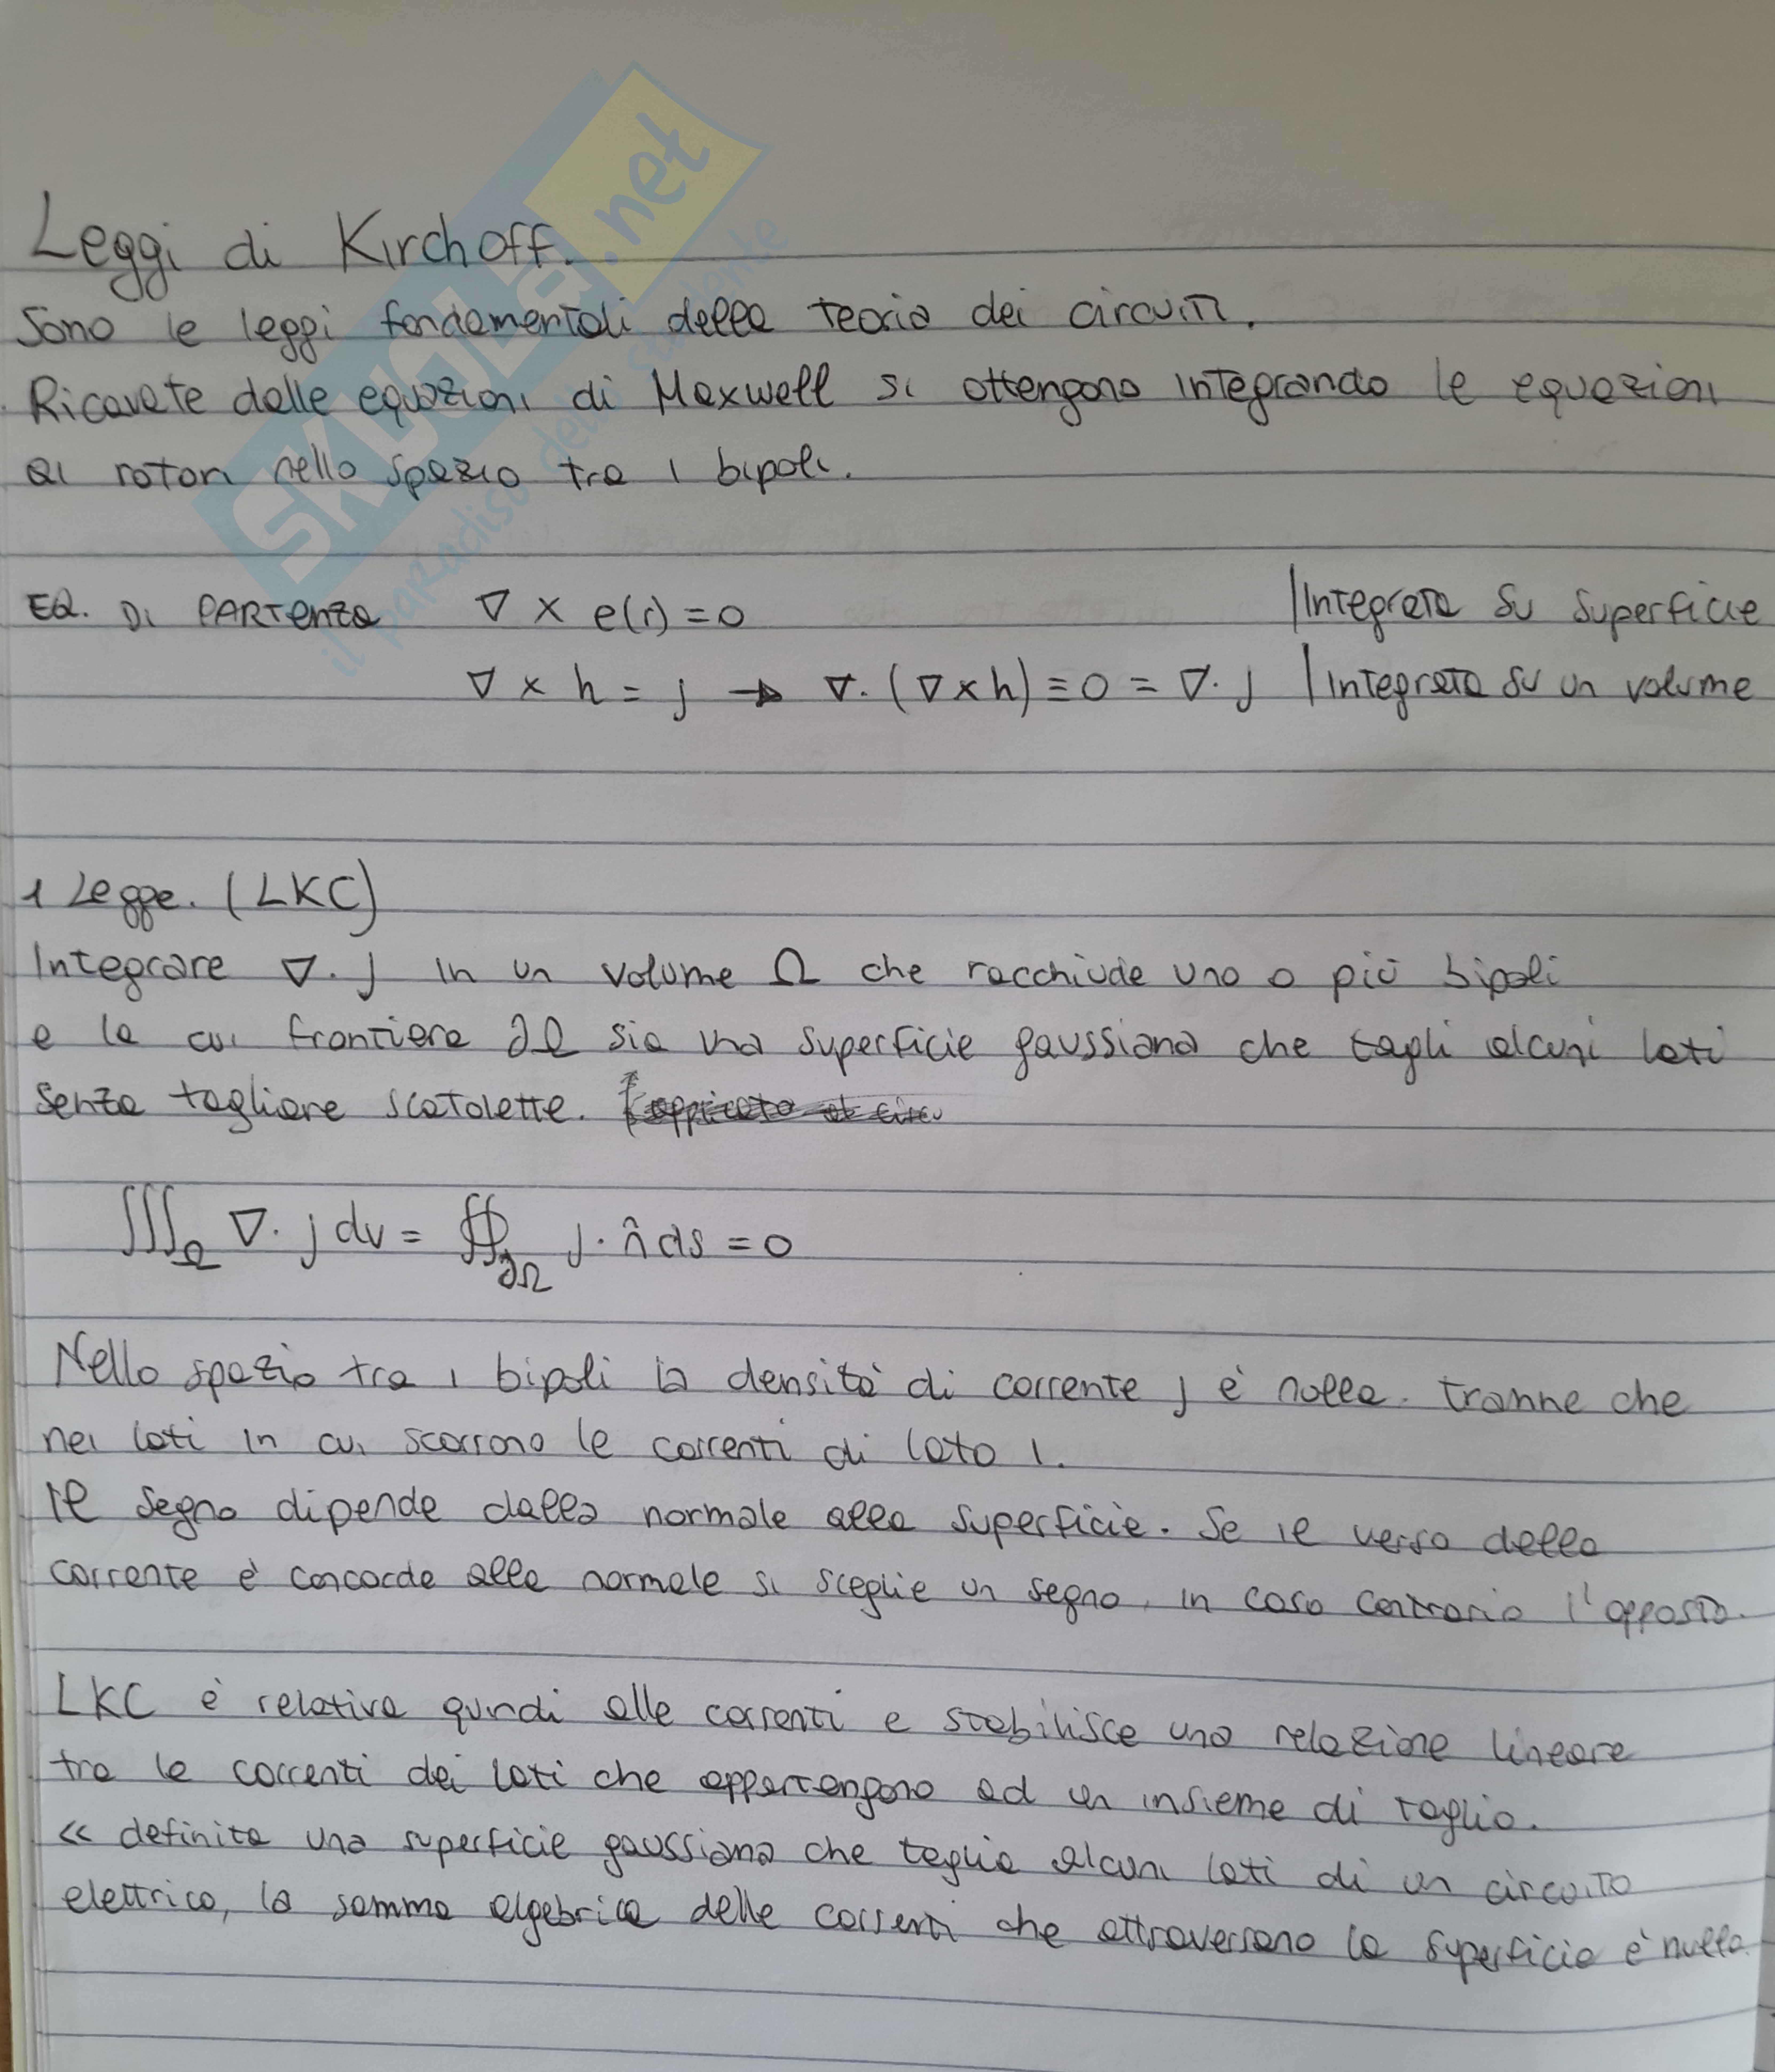 SKUOLA.net
il paradiso dello studente
Leggi di Kirchoff.
Sono le leggi fondamentali della teoria dei circuiti.
Ricavate dalle equazioni di Maxwell si ottengono integrando le equazioni
ai rotori nello spazio tra i bipoli.
EQ. DI PARTENZA ∇ × e(r) = 0 | Integrata su superficie
∇ × h = j → ∇·(∇×h) ≡ 0 = ∇·j | Integrata su un volume
1 Legge. (LKC)
Integrare ∇·j in un volume Ω che racchiude uno o più bipoli
e la cui frontiera ∂Ω sia una superficie gaussiana che tagli alcuni lati
senza tagliare scatolette.
∭_Ω ∇·j dv = ∯_∂Ω j·n̂ ds = 0
Nello spazio tra i bipoli la densità di corrente j è nulla. tranne che
nei lati in cui scorrono le correnti di lato i.
Il segno dipende dalla normale alla superficie. Se il verso della
corrente è concorde alla normale si sceglie un segno, in caso contrario l'opposto.
LKC è relativa quindi alle correnti e stabilisce una relazione lineare
tra le correnti dei lati che appartengono ad un insieme di taglio.
<< definita una superficie gaussiana che taglia alcuni lati di un circuito
elettrico, la somma algebrica delle correnti che attraversano la superficie è nulla.